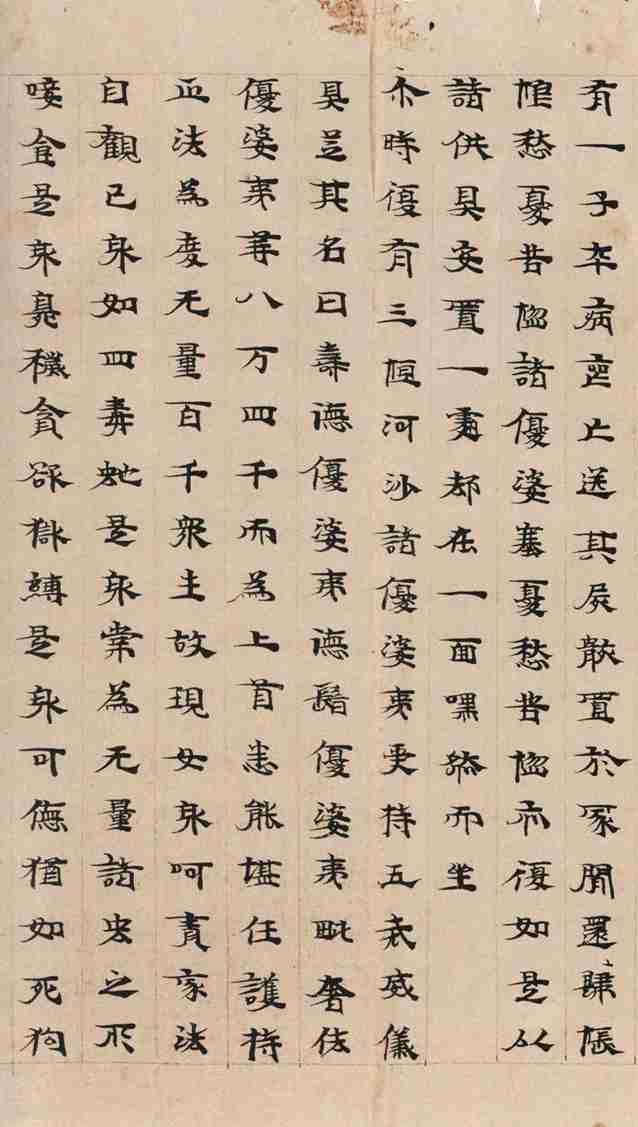 有一子卒病喪亡送其屍骸置於冢間還歸悵
恨愁憂苦惱諸優婆塞憂愁苦惱亦復如是以
諸供具安置一處却在一面嘿然而坐
尒時復有三恒河沙諸優婆夷受持五戒威儀
具足其名曰壽德優婆夷德鬘優婆夷毗舍佉
優婆夷等八万四千而為上首悉能堪任護持
正法為度无量百千衆生故現女身呵責家法
自觀己身如四毒虵是身常為无量諸虫之所
唼食是身臭穢貪欲獄縛是身可惡猶如死狗